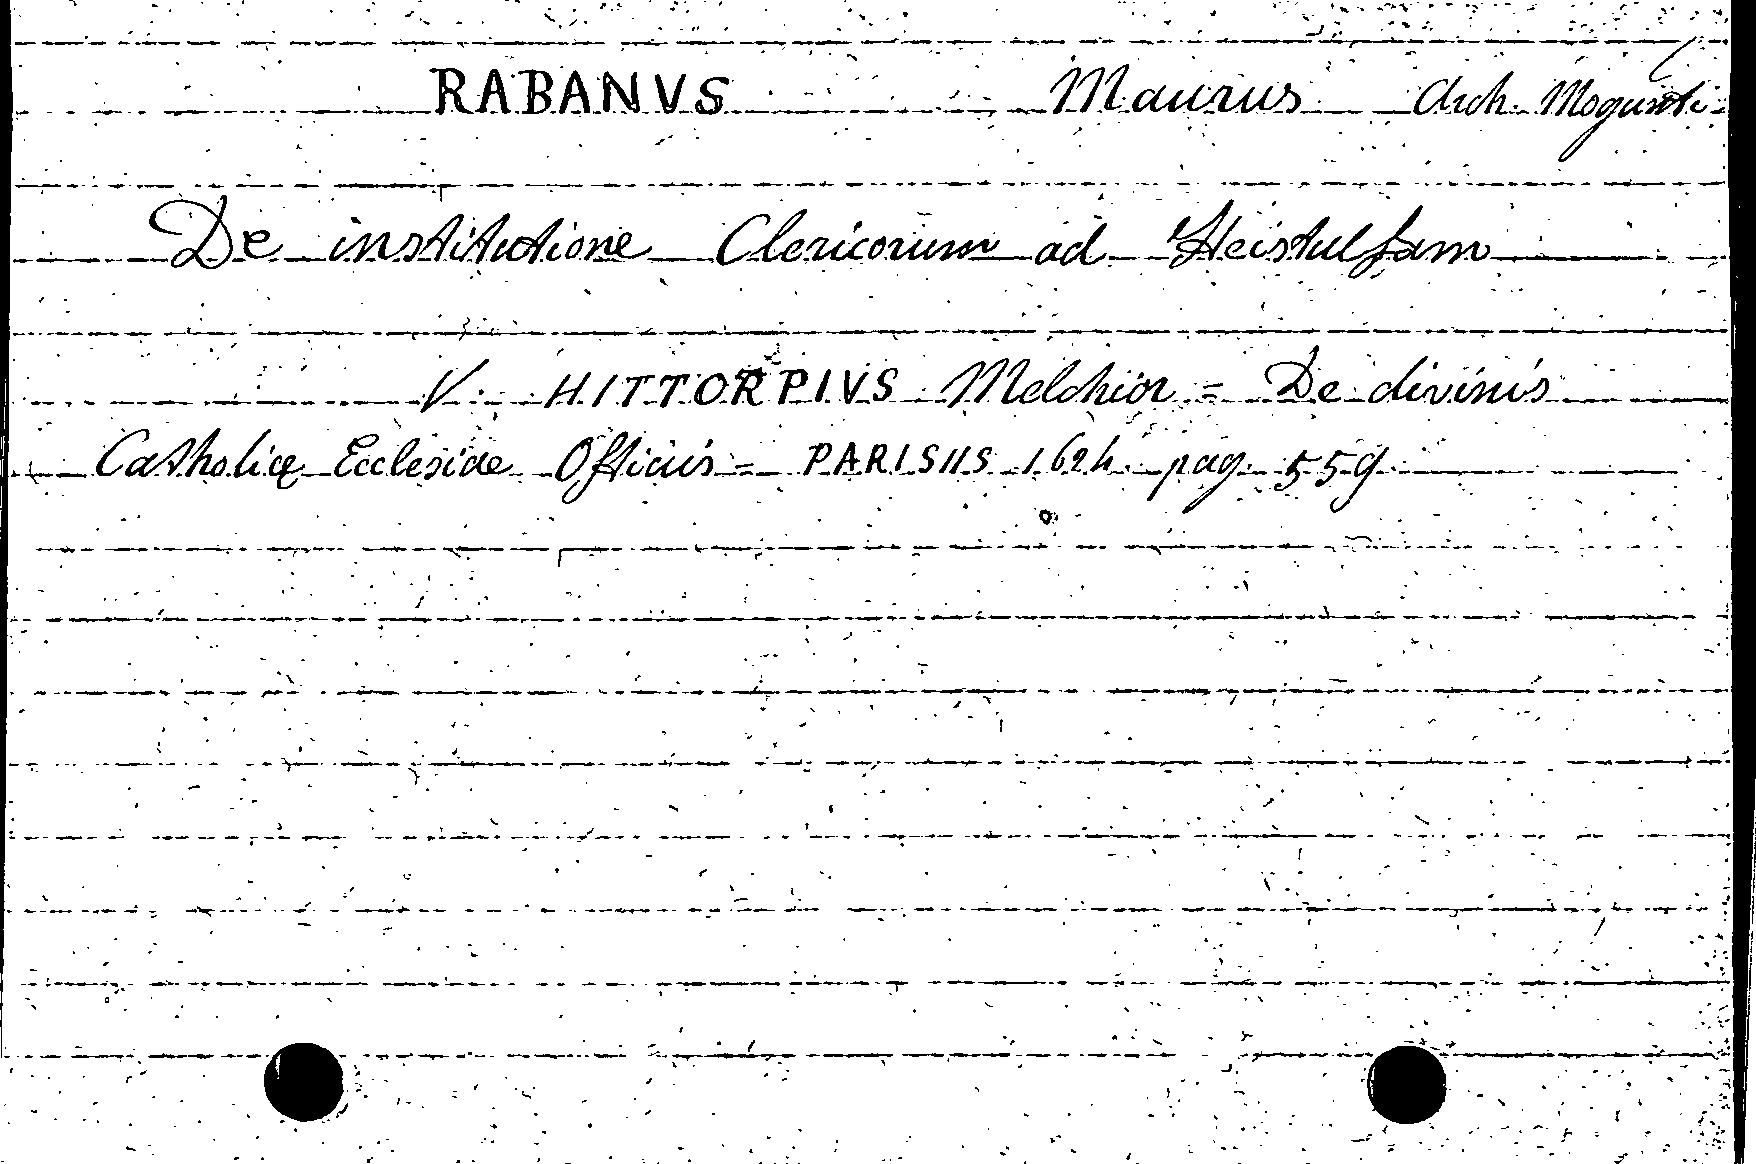 RABANVS Maurus Arch. Mogunti-
De institutione Clericorum ad Heistulfam
V. HITTORPIVS Melchior = De divinis
Catholicæ Ecclesiae Officiis = PARISIIS 1624. pag. 559